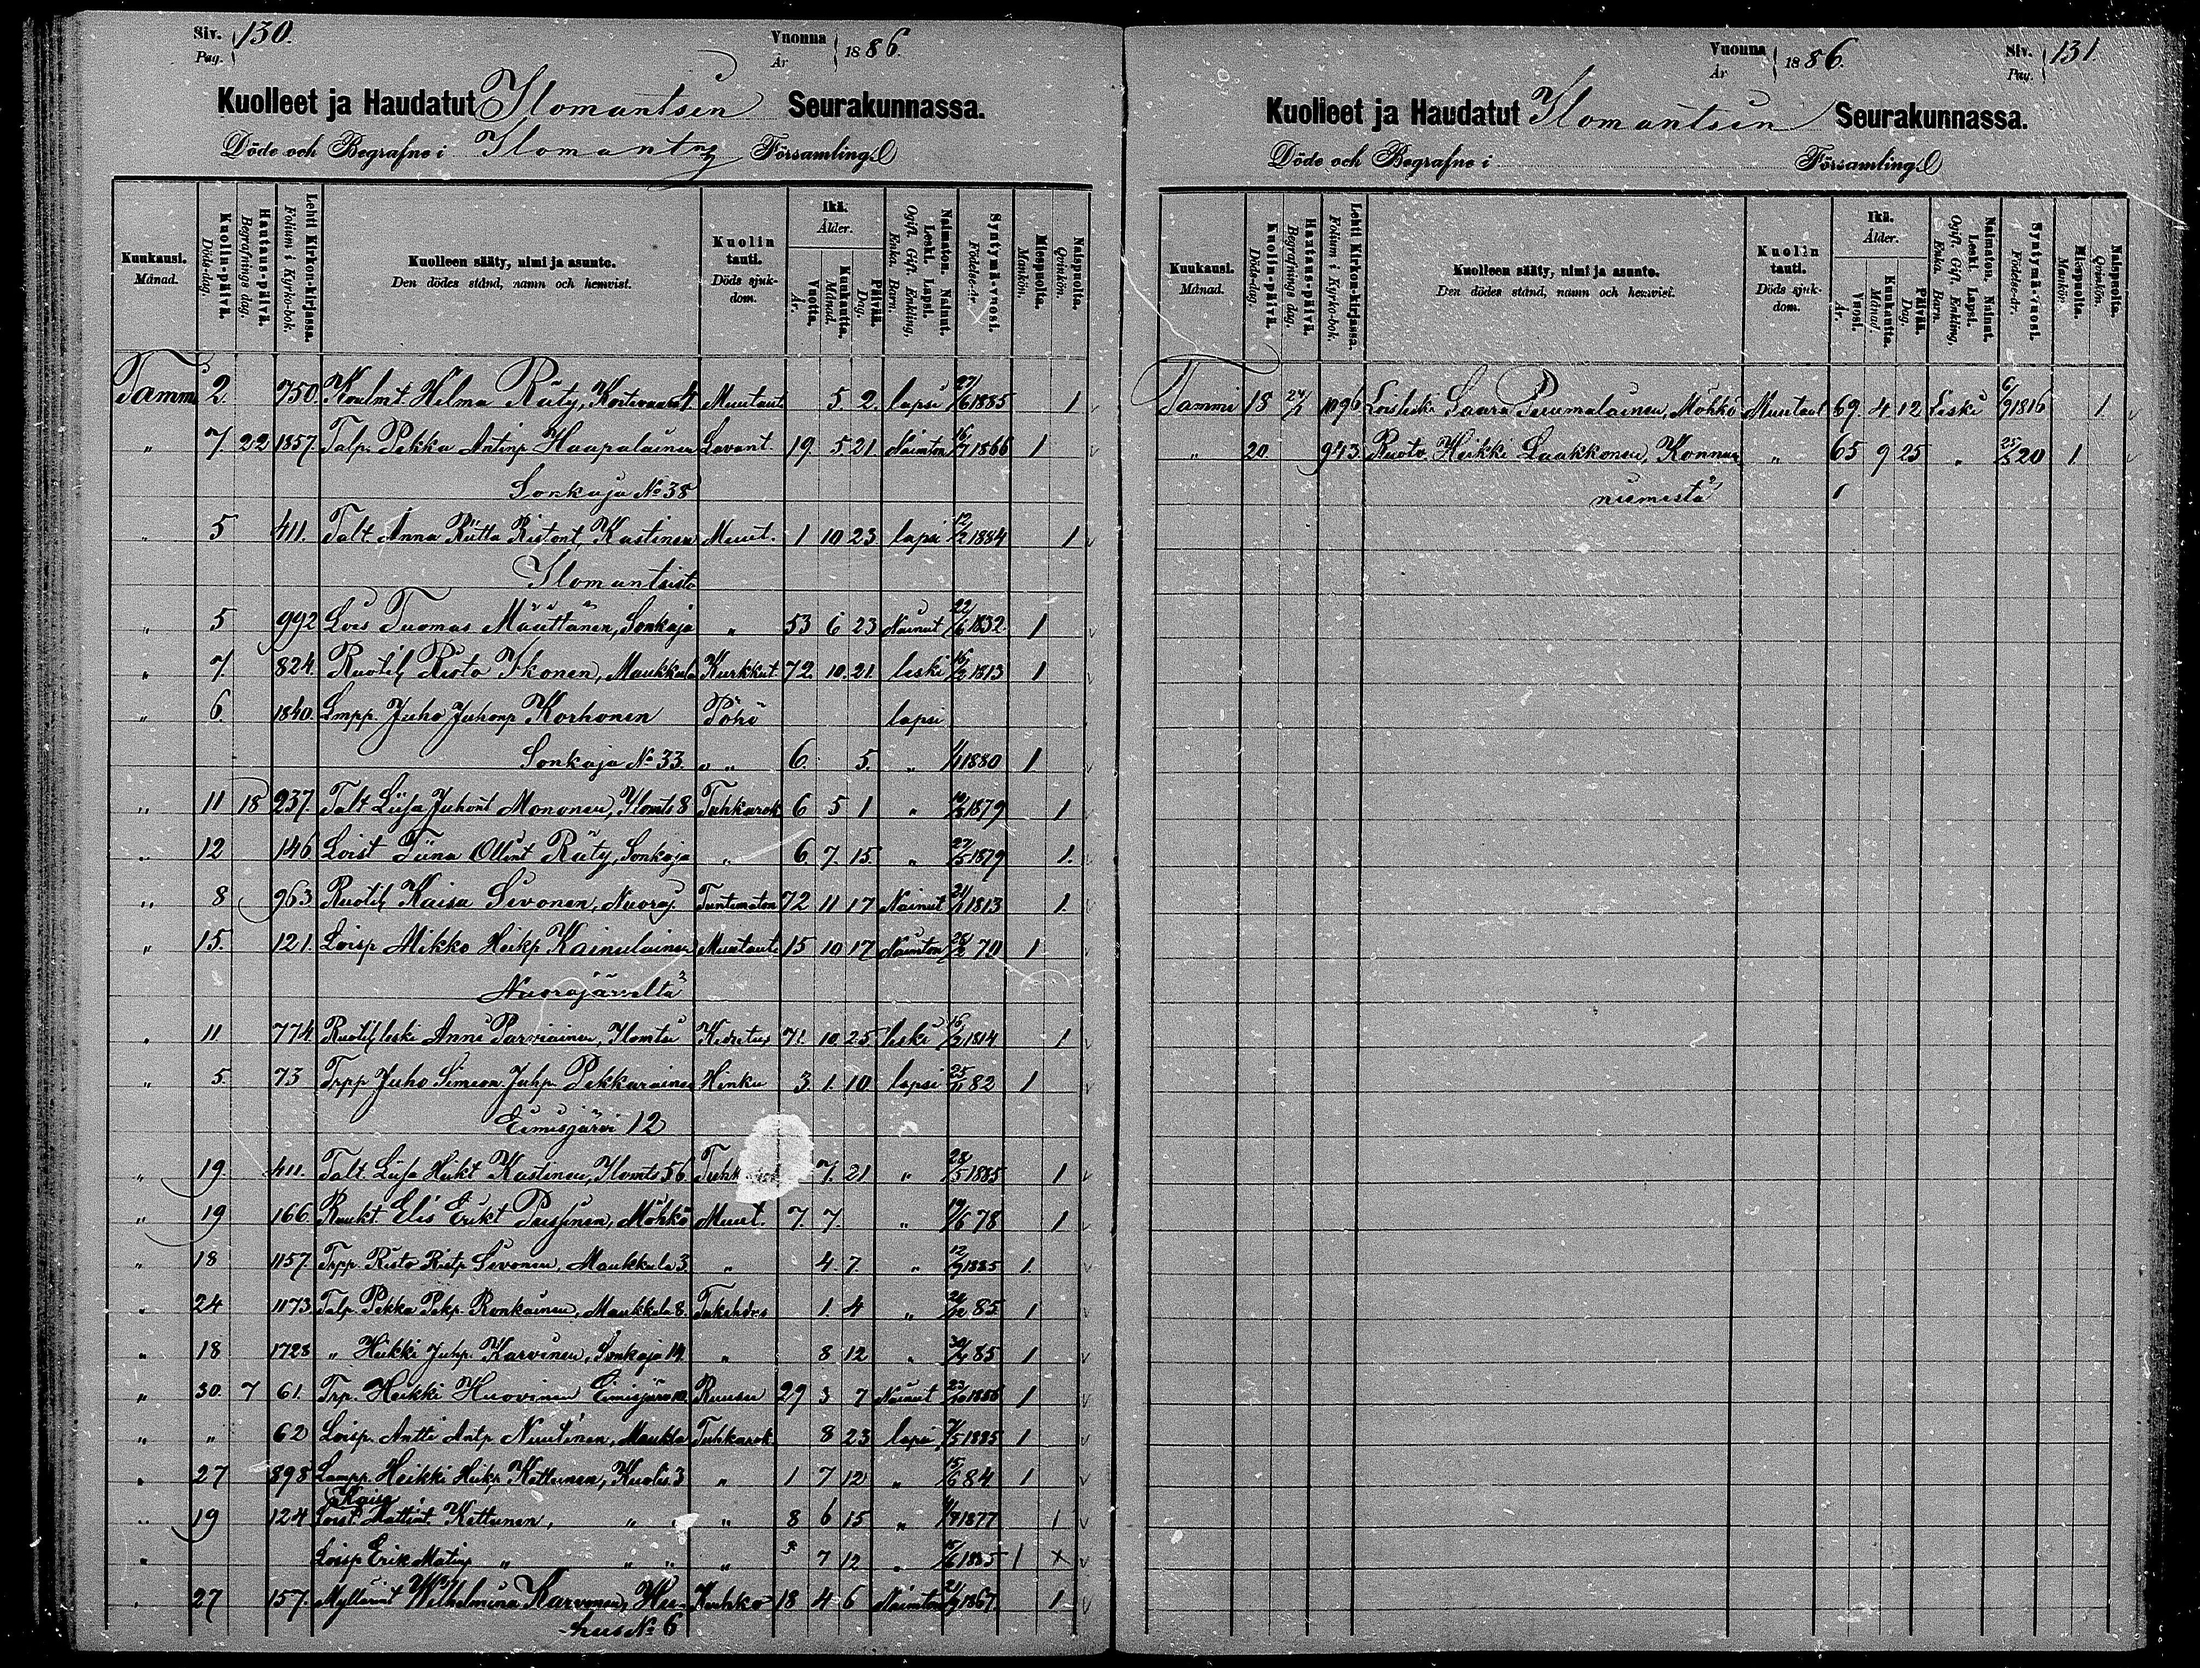 Siv. Pag. 130.
Vuonna År 1886.
Kuolleet ja Haudatut Ilomantsin Seurakunnassa.
Döde och Begrafne i Ilomants Församling
Kuukausi. Månad.
Kuolin-päivä. Döds-dag.
Hautaus-päivä. Begrafnings dag.
Lehti Kirkon-kirjassa. Folium i Kyrko-bok.
Kuolleen sääty, nimi ja asunto. Den dödes stånd, namn och hemvist.
Kuolin tauti. Döds sjukdom.
Ikä. Ålder.
Vuotta. År.
Kuukautta. Månad.
Päivää. Dag.
Naimaton. Nainut. Leski. Lapsi. Ogift. Gift. Enkling. Enka. Barn.
Syntymä-vuosi. Födelse-år.
Miespuolta. Mankön.
Naispuolta. Qvinkön.
Tammi 2. 750. Hilma Räty, Muutaut 5. 2. lapsi 27/6 1885 1
" 7. 22 1857 Talp. Pekka Antinp Haapalainen Lavant. 19. 5 21 Naimton 16/7 1866 1
Sonkaja No 38
" 5 411. Talt. Anna Riitta Ristont. Kastinen Muut. 1 10 23 lapsi 12/2 1884 1
Ilomantsista
" 5 992 Lois Tuomas Määttänen, Sonkaja " 53 6 23 Nainut 22/6 1832 1
" 7. 824. Risto Ikonen, Maukkula Kurkkut. 72. 10. 21. leski 16/2 1813 1
" 6. 1840. Lmpp. Juho Juhonp Korhonen Pöhö lapsi
Sonkaja No 33. " " 6. 5. " 1/1 1880 1
" 11 18 237. Talt Liisa Juhont Mononen, Ilomts 8 Tuhkarok 6 5 1 " 10/8 1879 1.
" 12 146 Loist Tiina Ollint Räty, Sonkaja " 6. 7. 15. " 27/5 1879 1.
" 8 963 Kaisa Sivonen, Nuoraj. Tuntematon 72 11 17 Nainut 1813 1.
" 15. 121. Loisp Mikko Heikp Kainulainen Muutaut 15 10 17 Naimton 28/2 70 1
Nuorajärveltä
" 11 774 leski Anni Parviainen, Ilomtsi 71. 10. 25 leski 16/2 1814 1
" 5. 73 Trpp Juho Simeon Juhp. Pekkarainen Hinku 3. 1. 10 lapsi 25/11 82 1
Eimisjärvi 12
" 19. 411. Talt. Liisa Heikt Kastinen, Ilomts 56 7. 21 " 28/5 1885 1
" 19 166. Elis Erikt Möhkö Muut. 7. 7. " 19/6 78 1
" 18 1157. Trpp. Risto Ristp Sivonen, Maukkula 3. " 4. 7 " 12/9 1885 1.
" 24 1173. Talp. Pekka Pekp. Ronkainen, Maukkula 8. 1. 4 " 20/12 85. 1
" 18 1728 " Heikki Juhp. Karvinen, Sonkaja 14. " 8 12 " 85 1
" 30. 7 61. Trp. Heikki Huovinen Eimisjärvi Ruusu 29 3 7 Nainut 23/10 1856 1
" " 62 Loisp. Antti Antp. Nuutinen, Maukla Tuhkarok. 8 23 lapsi 7/5 1885 1
" 27 898 Lampp. Heikki Heikp. Kettunen, Kuolis 3 " 1 7 12 " 15/6 84 1
Kaisa
" 19 124 Loist. Mattint. Kettunen, " " " 8 6 15 " 4/7 1877 1
" Loisp Erik Matinp " " " " 7 12 " 15/6 1885 1 x
" 27 157. Myllärint Wilhelmina Karvonen, Keuhko 18 4 6 Naimton 21/9 1867 1
-hus No 6
Vuonna År 1886.
Siv. Pag. 131.
Kuolleet ja Haudatut Ilomantsin Seurakunnassa.
Döde och Begrafne i Församling
Kuukausi. Månad.
Kuolin-päivä. Döds-dag.
Hautaus-päivä. Begrafnings dag.
Lehti Kirkon-kirjassa. Folium i Kyrko-bok.
Kuolleen sääty, nimi ja asunto. Den dödes stånd, namn och hemvist.
Kuolin tauti. Döds sjukdom.
Ikä. Ålder.
Vuosi. År.
Kuukautta. Månad.
Päivää. Dag.
Naimaton. Nainut. Leski. Lapsi. Ogift. Gift. Enkling, Enka. Barn.
Syntymä-vuosi. Födelse-år.
Miespuolta. Mankön.
Naispuolta. Qvinkön.
Tammi 18 24/1 1096 Loisleski Saara Puumalainen, Möhkö Muutaut 69. 4 12 Leski 6/9 1816 1
" 20. 943. Ruotv. Heikki Laakkonen, Konnun " 65 9 25 " 25/3 20 1.
niemestä